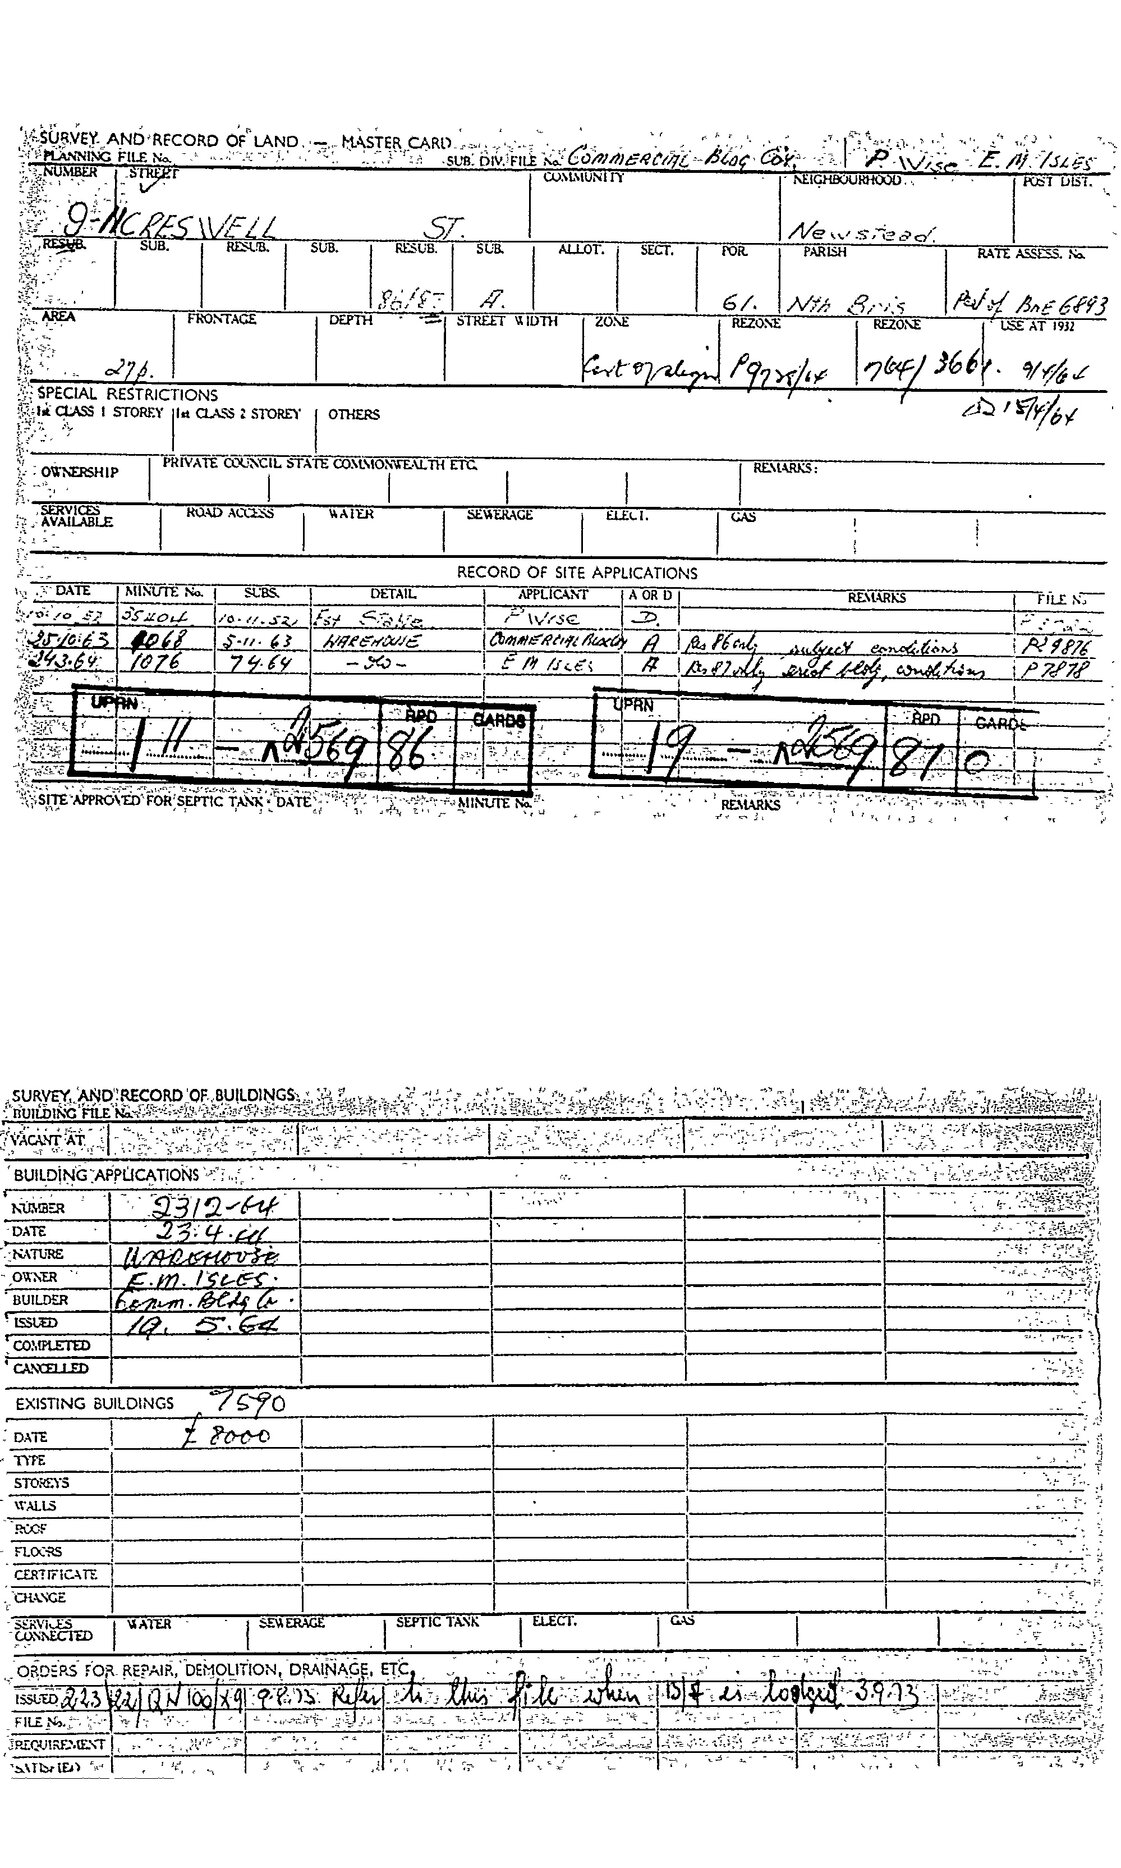 SURVEY AND RECORD OF LAND. — MASTER CARD
PLANNING FILE No. SUB. DIV. FILE No. COMMERCIAL BLDG COY. P WISE E. M ISLES
NUMBER STREET COMMUNITY NEIGHBOURHOOD. POST DIST.
9-11 CRESWELL ST. Newstead.
RESUB. SUB. RESUB. SUB. RESUB. SUB. ALLOT. SECT. POR. PARISH RATE ASSESS. No.
86/87 A. 61. Nth Bris Pt of BNE 6893
AREA FRONTAGE DEPTH STREET WIDTH ZONE REZONE REZONE USE AT 1932
27p. Cert of align P9728/64 764/3661. 9/4/64
SPECIAL RESTRICTIONS
1st CLASS 1 STOREY 1st CLASS 2 STOREY OTHERS 15/4/64
OWNERSHIP PRIVATE COUNCIL STATE COMMONWEALTH ETC. REMARKS:
SERVICES AVAILABLE ROAD ACCESS WATER SEWERAGE ELECT. GAS
RECORD OF SITE APPLICATIONS
DATE MINUTE No. SUBS. DETAIL APPLICANT A OR D REMARKS FILE No.
10.10.52 35404 10.11.52 Est Stable P Wise D.
25.10.63 4068 5.11.63 WAREHOUSE COMMERCIAL BLDG COY A Res 86 only subject conditions P29876
24.3.64 1076 7.4.64 —do— E M ISLES A Res 87 only erect bldg, conditions P7878
UPRN RPD CARDS UPRN RPD CARDS
1 11 — 2569 86 19 — 2569 87 0
SITE APPROVED FOR SEPTIC TANK - DATE MINUTE No. REMARKS
SURVEY AND RECORD OF BUILDINGS
BUILDING FILE No.
VACANT AT
BUILDING APPLICATIONS
NUMBER 2312-64
DATE 23.4.64
NATURE WAREHOUSE
OWNER E.M. ISLES.
BUILDER Comm. Bldg Co.
ISSUED 19. 5.64
COMPLETED
CANCELLED
EXISTING BUILDINGS 7590
DATE £ 8000
TYPE
STOREYS
WALLS
ROOF
FLOORS
CERTIFICATE
CHANGE
SERVICES CONNECTED WATER SEWERAGE SEPTIC TANK ELECT. GAS
ORDERS FOR REPAIR, DEMOLITION, DRAINAGE, ETC.
ISSUED 223/22/QN100/ 9.8.73 Refer to this file when B/A is lodged 3.9.73
FILE No.
REQUIREMENT
SATISFIED